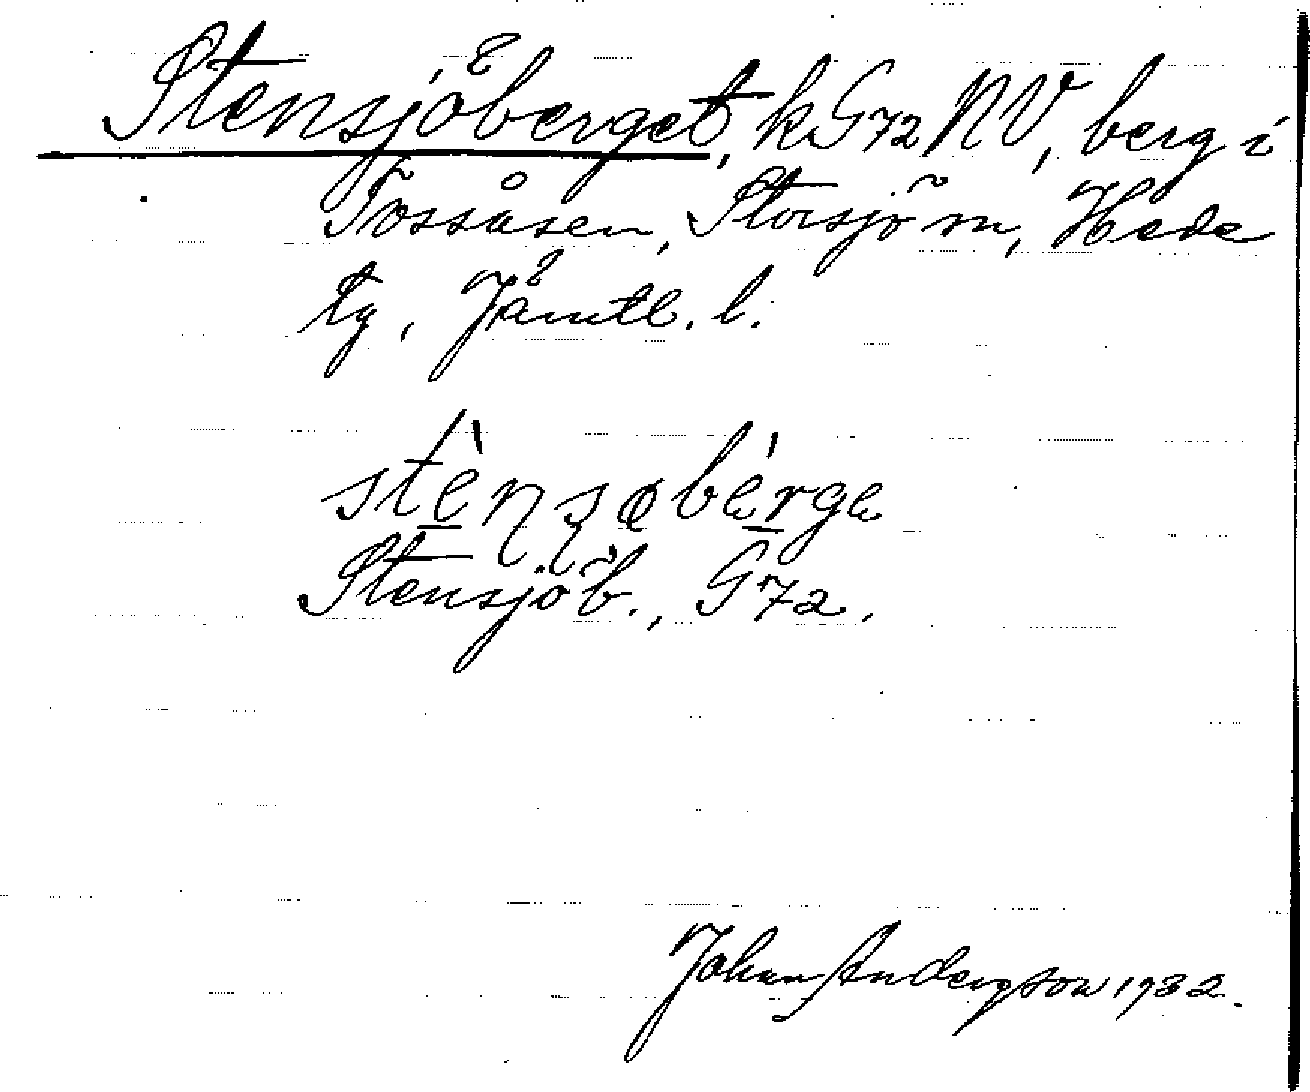 Stensjöberget, k G72 NV, berg i
Tossåsen, Storsjö m, Hede
tg, Jämtl. l.
stènsøbèrge
Stensjöb., G72.
Johan Anderzson 1932.